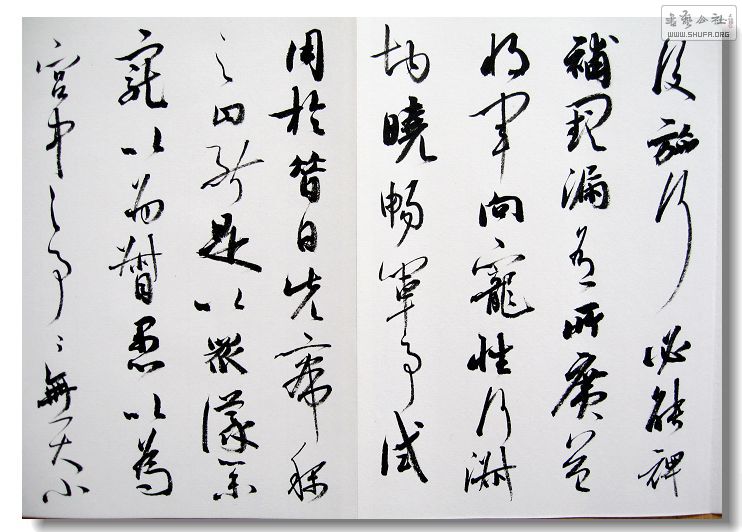 後施行必能裨
補闕漏有所廣益
將軍向寵性行淑
均曉暢軍事試
用於昔日先帝稱
之曰能是以眾議舉
寵以為督愚以為
宮中之事〻無大小
书艺公社
WWW.SHUFA.ORG